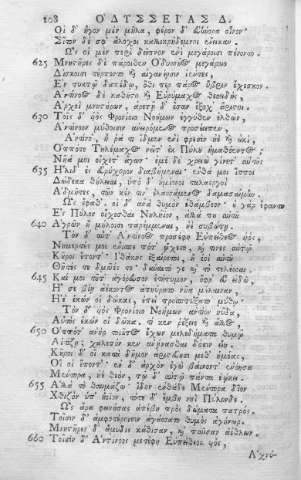 108 ΟΔΥΣΣΕΙΑΣ Δ.
Οἱ δ' ἦγον μὲν μῆλα, φέρον δ' εὐήνορα οἶνον·
Σῖτον δέ σφ' ἄλοχοι καλλικρήδεμνοι ἔπεμπον.
Ὣς οἱ μὲν περὶ δεῖπνον ἐνὶ μεγάροισι πένοντο.
625 Μνηστῆρες δὲ πάροιθεν Ὀδυσσῆος μεγάροιο
Δίσκοισιν τέρποντο καὶ αἰγανέῃσιν ἱέντες,
Ἐν τυκτῷ δαπέδῳ, ὅθι περ πάρος ὕβριν ἔχεσκον.
Ἀντίνοος δὲ καθῆστο καὶ Εὐρύμαχος θεοειδὴς
Ἀρχοὶ μνηστήρων, ἀρετῇ δ' ἔσαν ἔξοχ' ἄριστοι.
630 Τοῖς δ' υἱὸς Φρονίοιο Νοήμων ἐγγύθεν ἐλθὼν,
Ἀντίνοον μύθοισιν ἀνειρόμενος προσέειπεν·
Ἀντίνο', ἦ ῥά τι ἴδμεν ἐνὶ φρεσὶν ἠὲ καὶ οὐκὶ,
Ὁππότε Τηλέμαχος νεῖτ' ἐκ Πύλου ἠμαθόεντος;
Νῆά μοι οἴχετ' ἄγων· ἐμὲ δὲ χρεὼ γίνετ' αὐτῆς
635 Ἤλιδ' ἐς εὐρύχορον διαβήμεναι· ἔνθα μοι ἵπποι
Δώδεκα θήλειαι, ὑπὸ δ' ἡμίονοι ταλαεργοὶ
Ἀδμῆτες, τῶν κέν τιν' ἐλασσάμενος δαμασαίμην.
Ὣς ἔφαθ'. οἱ δ' ἀνὰ θυμὸν ἐθάμβεον· οὐ γὰρ ἔφαντο
Ἐς Πύλον οἴχεσθαι Νηλήϊον, ἀλλά που αὐτοῦ
640 Ἀγρῶν ἢ μήλοισι παρέμμεναι, ἠὲ συβώτῃ.
Τὸν δ' αὖτ' Ἀντίνοος προσέφη Εὐπείθεος υἱός,
Νημερτές μοι ἔνισπε πότ' ᾤχετο, καὶ τίνες αὐτῷ
Κοῦροι ἕποντ'; Ἰθάκης ἐξαίρετοι, ἢ ἑοὶ αὐτοῦ
Θῆτές τε δμῶές τε; δύναιτό κε καὶ τὸ τελέσσαι.
645 Καί μοι τοῦτ' ἀγόρευσον ἐτήτυμον, ὄφρ' εὖ εἰδῶ,
Ἤ σε βίῃ ἀέκοντος ἀπηύρα νῆα μέλαιναν,
Ἠὲ ἑκών οἱ δῶκας, ἐπεὶ προσπτύξατο μύθῳ.
Τὸν δ' υἱὸς Φρονίοιο Νοήμων ἀντίον ηὔδα,
Αὐτὸς ἑκών οἱ δῶκα. τί κεν ῥέξειε καὶ ἄλλος,
650 Ὁππότ' ἀνὴρ τοιοῦτος ἔχων μελεδήματα θυμῷ
Αἰτίζῃ; χαλεπόν κεν ἀνήνασθαι δόσιν εἴη.
Κοῦροι δ' οἳ κατὰ δῆμον ἀριστεύουσι μεθ' ἡμέας,
Οἵ οἱ ἕποντ'· ἐν δ' ἀρχὸν ἐγὼ βαίνοντ' ἐνόησα
Μέντορα, ἠὲ θεὸν, τῷ δ' αὐτῷ πάντα ἐῴκει.
655 Ἀλλὰ τὸ θαυμάζω· ἴδον ἐνθάδε Μέντορα δῖον
Χθιζὸν ὑπ' ἠοῖον, τότε δ' ἔμβη νηῒ Πύλονδε.
Ὣς ἄρα φωνήσας ἀπέβη πρὸς δώματα πατρός.
Τοῖσιν δ' ἀμφοτέροισιν ἀγάσσατο θυμὸς ἀγήνωρ.
Μνηστῆρες δ' ἄμυδις κάθισαν, καὶ παῦσαν ἀέθλων.
660 Τοῖσιν δ' Ἀντίνοος μετέφη Εὐπείθεος υἱός,
Ἀχνύ-